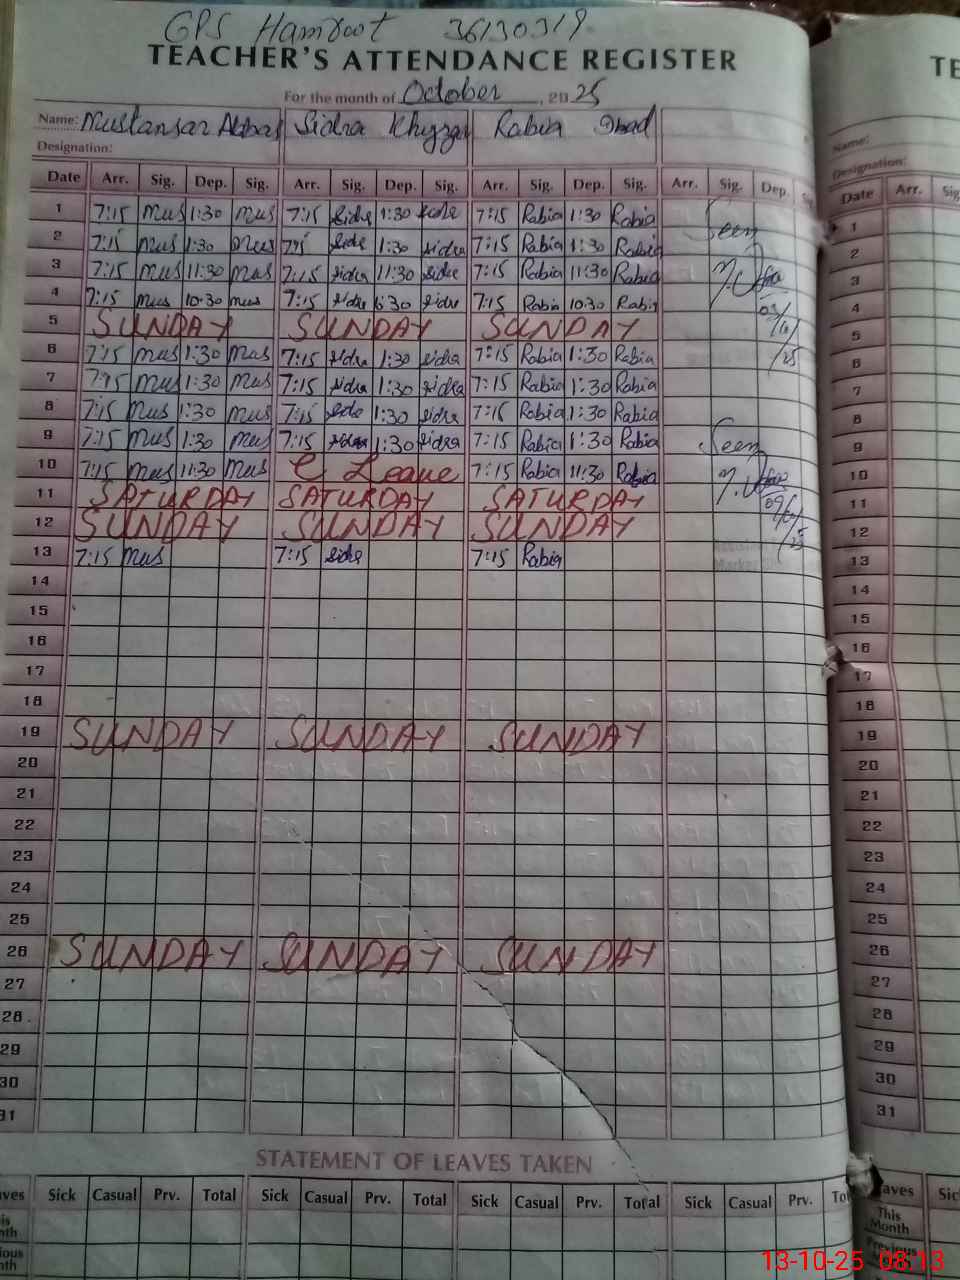 GPS Hamroot 36130319
TEACHER'S ATTENDANCE REGISTER
For the month of October, 2025
Name: Mustansar Abbas Sidra Khyzzar Rabia Ibad
Designation:
Date Arr. Sig. Dep. Sig. Arr. Sig. Dep. Sig. Arr. Sig. Dep. Sig. Arr. Sig. Dep.
1 7:15 mus 1:30 mus 7:15 sidra 1:30 sidra 7:15 Rabia 1:30 Rabia Seen
2 7:15 mus 1:30 mus 7:15 sidra 1:30 sidra 7:15 Rabia 1:30 Rabia
3 7:15 mus 11:30 mus 7:15 sidra 11:30 sidra 7:15 Rabia 11:30 Rabia
4 7:15 mus 10:30 mus 7:15 sidra 10:30 sidra 7:15 Rabia 10:30 Rabia 03/10/25
5 SUNDAY SUNDAY SUNDAY
6 7:15 mus 1:30 mus 7:15 sidra 1:30 sidra 7:15 Rabia 1:30 Rabia
7 7:15 mus 1:30 mus 7:15 sidra 1:30 sidra 7:15 Rabia 1:30 Rabia
8 7:15 mus 1:30 mus 7:15 sidra 1:30 sidra 7:15 Rabia 1:30 Rabia
9 7:15 mus 1:30 mus 7:15 sidra 1:30 sidra 7:15 Rabia 1:30 Rabia Seen
10 7:15 mus 11:30 mus C Leave 7:15 Rabia 11:30 Rabia
11 SATURDAY SATURDAY SATURDAY 09/10/25
12 SUNDAY SUNDAY SUNDAY
13 7:15 mus 7:15 sidra 7:15 Rabia
14
15
16
17
18
19 SUNDAY SUNDAY SUNDAY
20
21
22
23
24
25
26 SUNDAY SUNDAY SUNDAY
27
28
29
30
31
STATEMENT OF LEAVES TAKEN
Sick Casual Prv. Total Sick Casual Prv. Total Sick Casual Prv. Total Sick Casual Prv.
Name:
Designation:
Date Arr.
1
2
3
4
5
6
7
8
9
10
11
12
13
14
15
16
17
18
19
20
21
22
23
24
25
26
27
28
29
30
31
This
Month
Previous
13-10-25 08:13